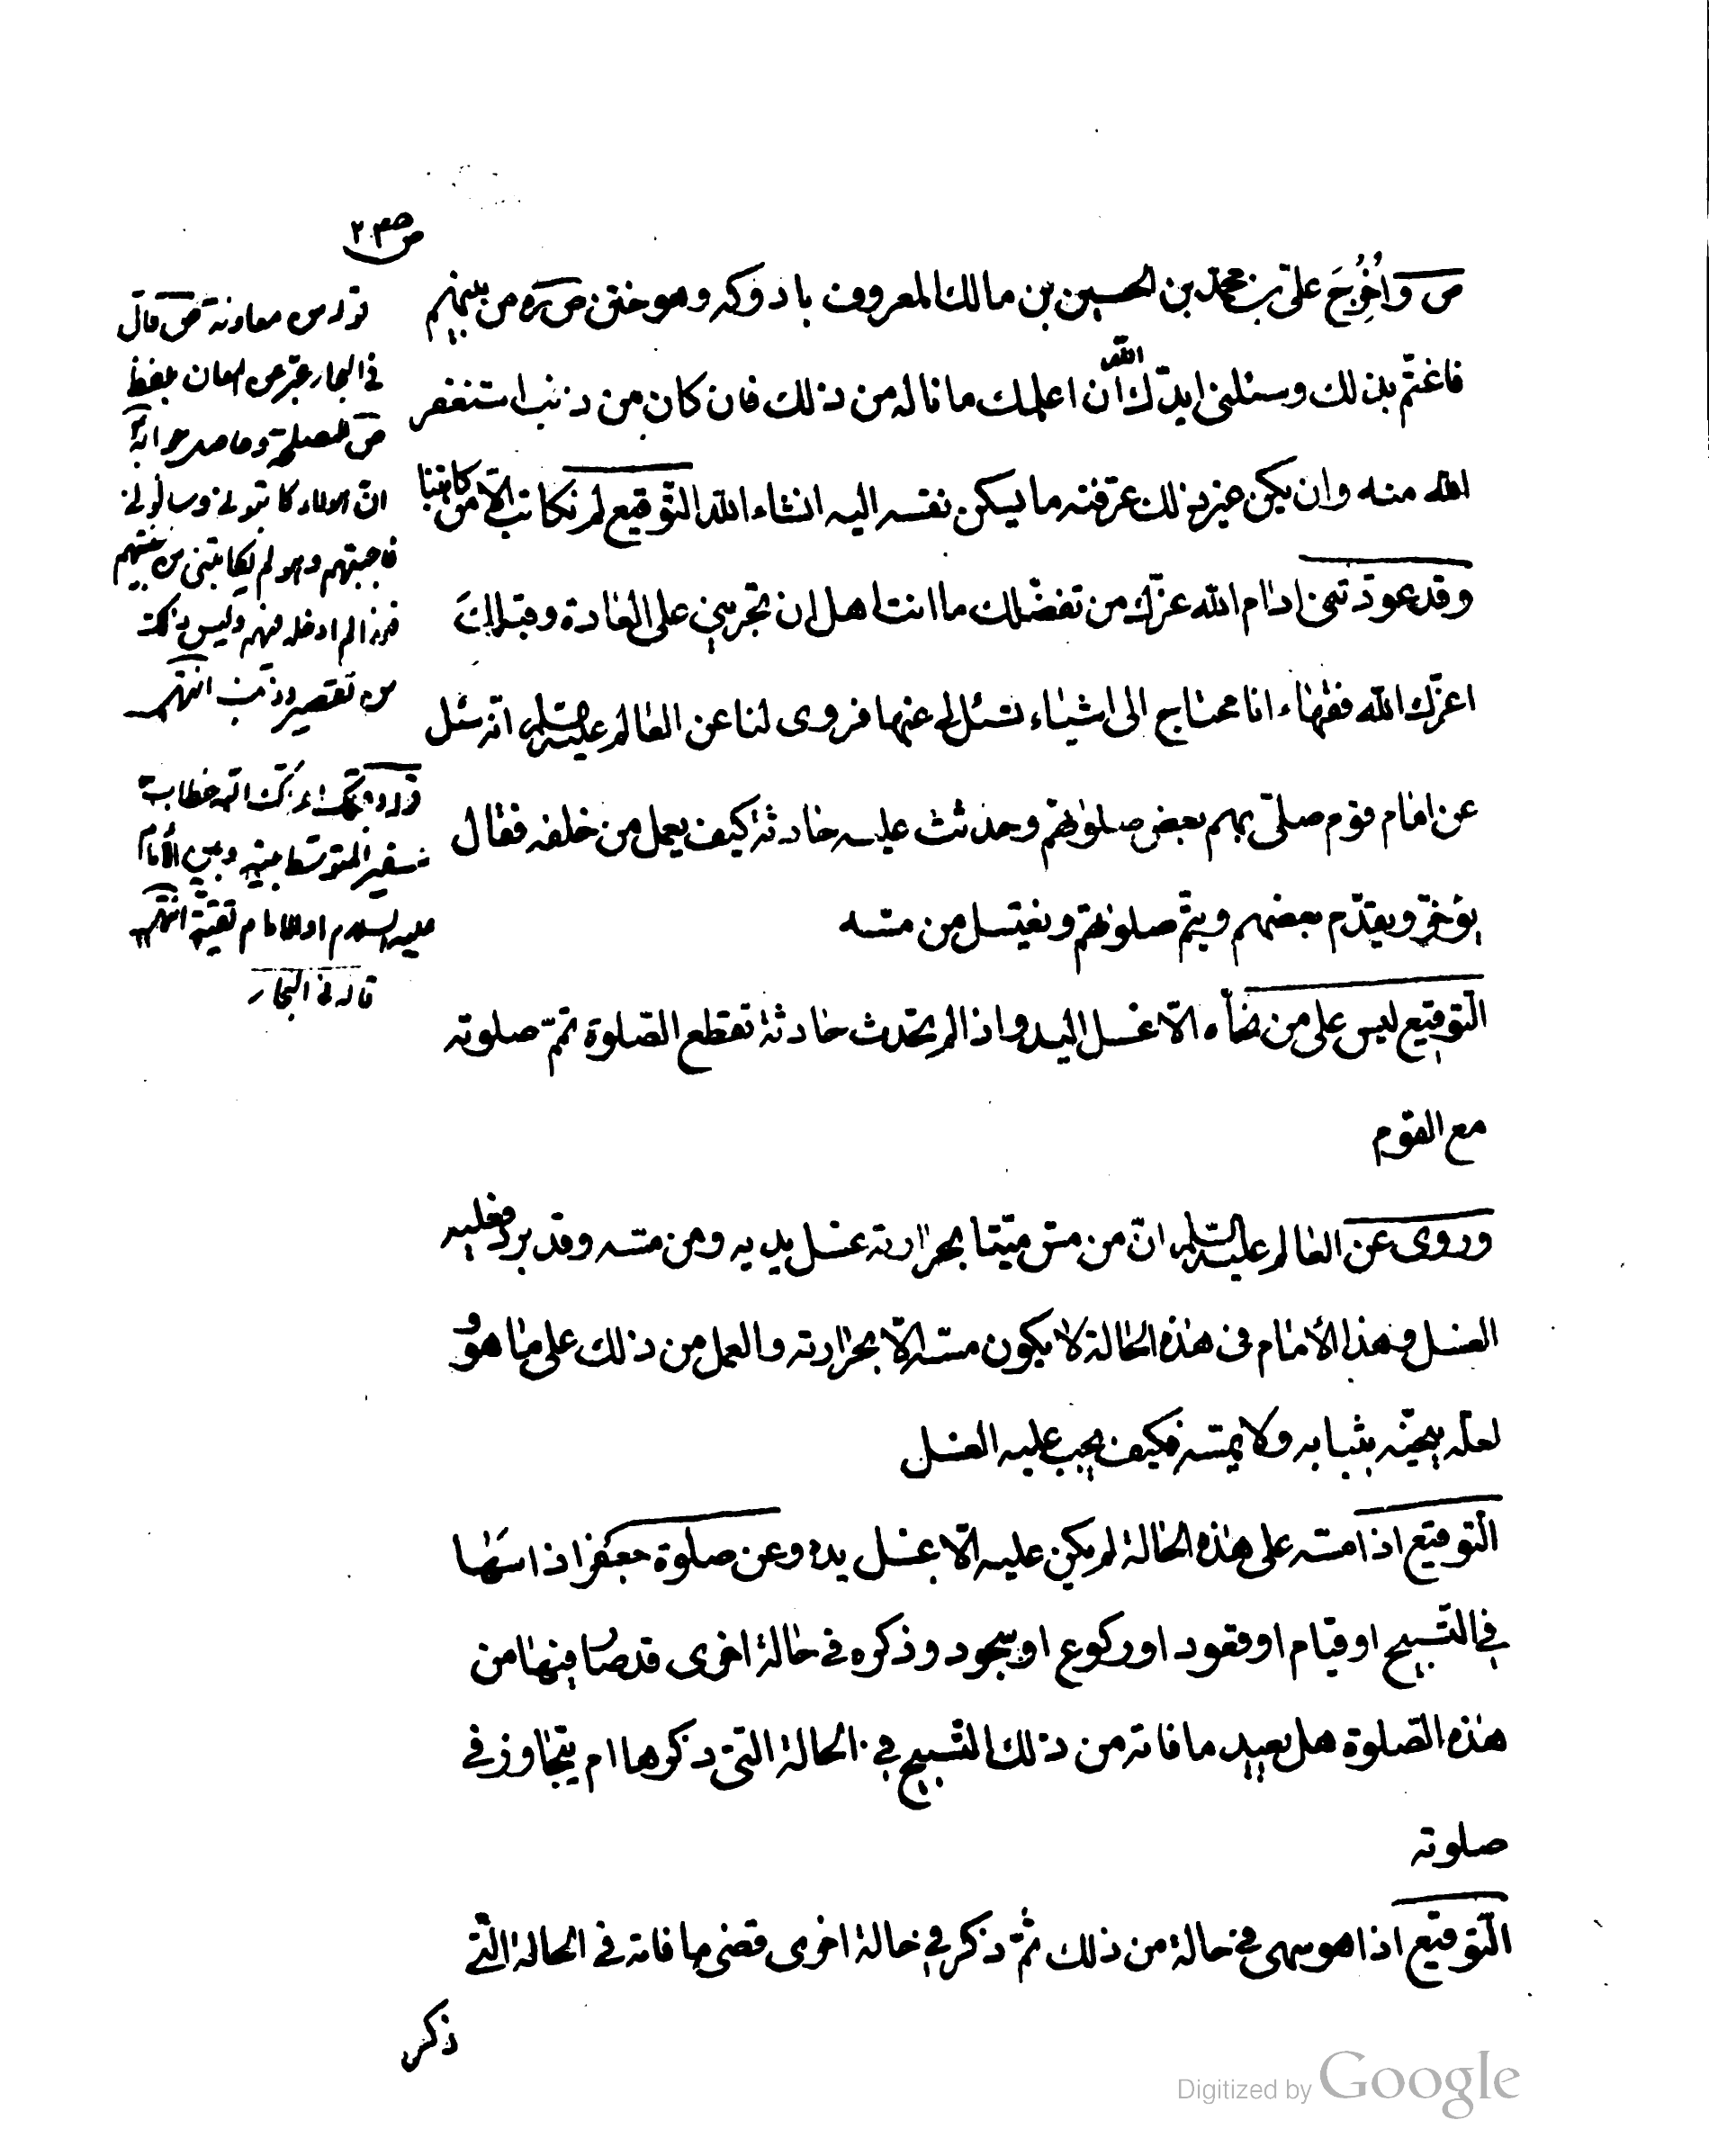 ص وَاُخْرِجَ علی بن محمد بن الحسین بن مالك المعروف بادوکه وهو ختن ص ره من بینهم
فاغتم بذلك وسئلنی ایدك الله ان اعلمك ما ناله من ذلك فان كان من ذنب استغفر
الله منه وان یكن غیر ذلك عرفته ما یسكن نفسه الیه انشاء الله التوقیع لم نكاتب الا من كاتبنا
وقد عودتنی ادام الله عزك من تفضلك ما انت اهل ان تجرینی علی العادة وقبلك
اعزك الله فقهاء انا محتاج الی اشیاء تسئل لی عنها فروی لنا عن العالم علیه السلم انه سئل
عن امام قوم صلی بهم بعض صلوتهم وحدثت علیه حادثة كیف یعمل من خلفه فقال
یؤخر ویقدم بعضهم ویتم صلوتهم ویغتسل من مسه
التوقیع لیس علی من نحاه الا غسل الید واذا لم یحدث حادثة تقطع الصلوة تمم صلوته
مع القوم
وروی عن العالم علیه السلم ان من مس میتا بحرارته غسل یدیه ومن مسه وقد برد فعلیه
الغسل وهذا الامام فی هذه الحالة لا یكون مسه الا بحرارته والعمل من ذلك علی ما هو و
لعله ینحیه بثیابه ولا یمسه فكیف یجب علیه الغسل
التوقیع اذا مسه علی هذه الحالة لم یكن علیه الا غسل یده وعن صلوة جعفر اذا سَها
فی التسبیح او قیام او قعود او ركوع او سجود وذكره فی حالة اخری قد صار فیها من
هذه الصلوة هل یعید ما فاته من ذلك التسبیح فی الحالة التی ذكرها ام یتجاوز فی
صلوته
التوقیع اذا هو سهی فی حالة من ذلك ثم ذكر فی حالة اخری قضی ما فاته فی الحالة التی
ذكر
قوله من معاونة ص قال
فی البحار عبر عن المعان برمز
ص للمصلحة وحاصل جوابه
ان هؤلاء كاتبونی وسألونی
فاجبتهم وهو لم یكاتبنی من بینهم
فلذا لم ادخله فیهم ولیس ذلك
من تقصیر وذنب انتهی
قوله وقبلك اعزك الله خطاب
للسفیر المتوسط بینه وبین الامام
علیه السلام او للامام تقیة انتهی
قاله فی البحار
Digitized by Google